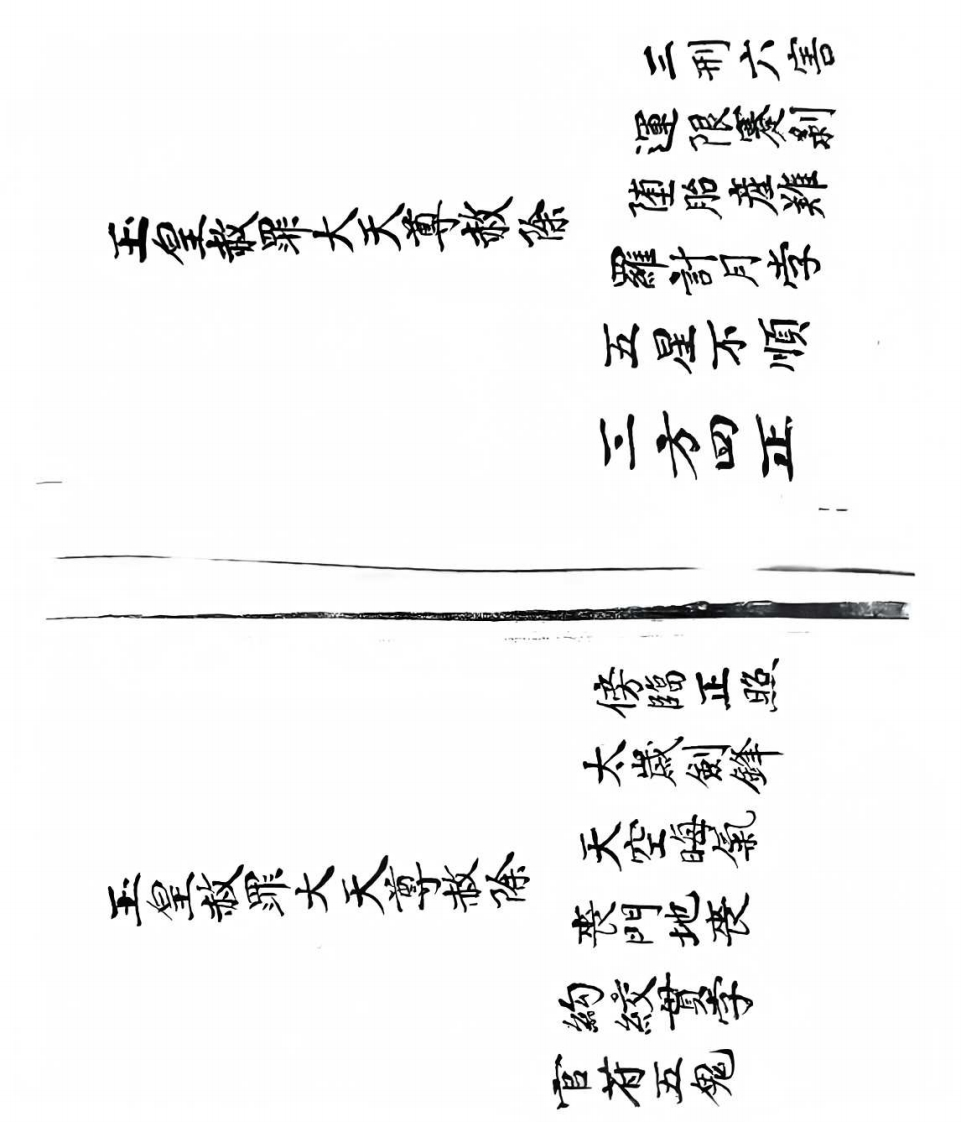 玉皇赦罪大天尊赦除
三刑六害
運限蹇剝
墮胎產難
羅計月孛
五星不順
三方四正
玉皇赦罪大天尊赦除
傍臨正照
太歲劍鋒
天空晦氣
喪門地喪
絇絞貫字
官苻五鬼